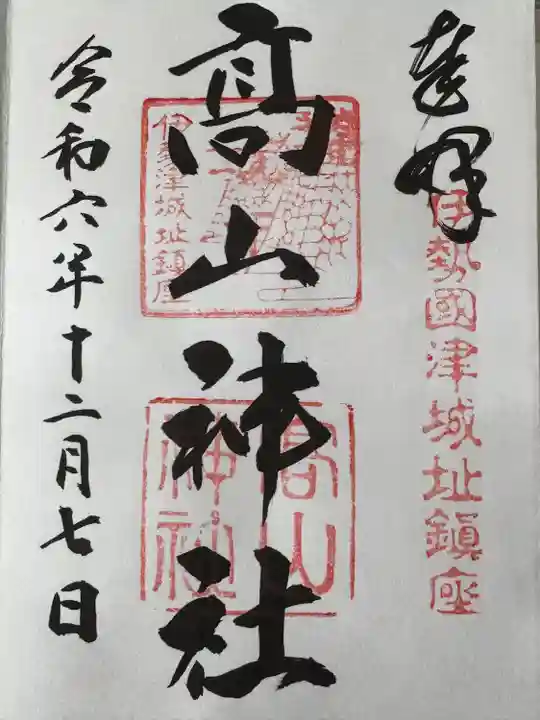 奉拝
伊勢國津城址鎮座
髙山神社
伊勢津城址鎮座
高山
神社
令和六年十二月七日